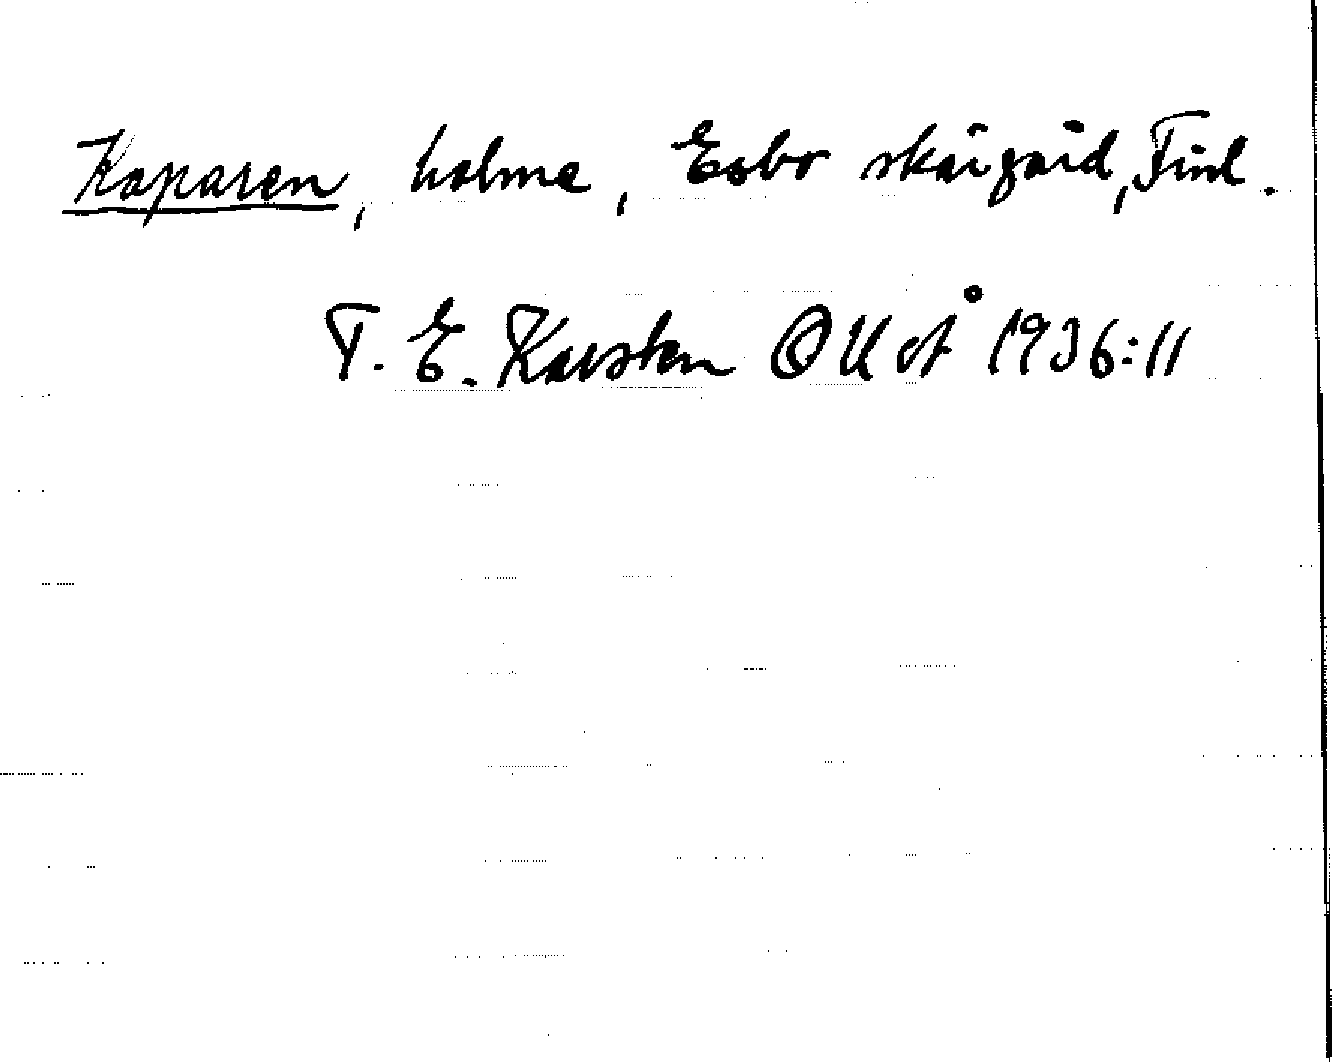 Kaparen, holme, Esbo skärgård, Finl.
T. E. Karsten OUoÅ 1936:11